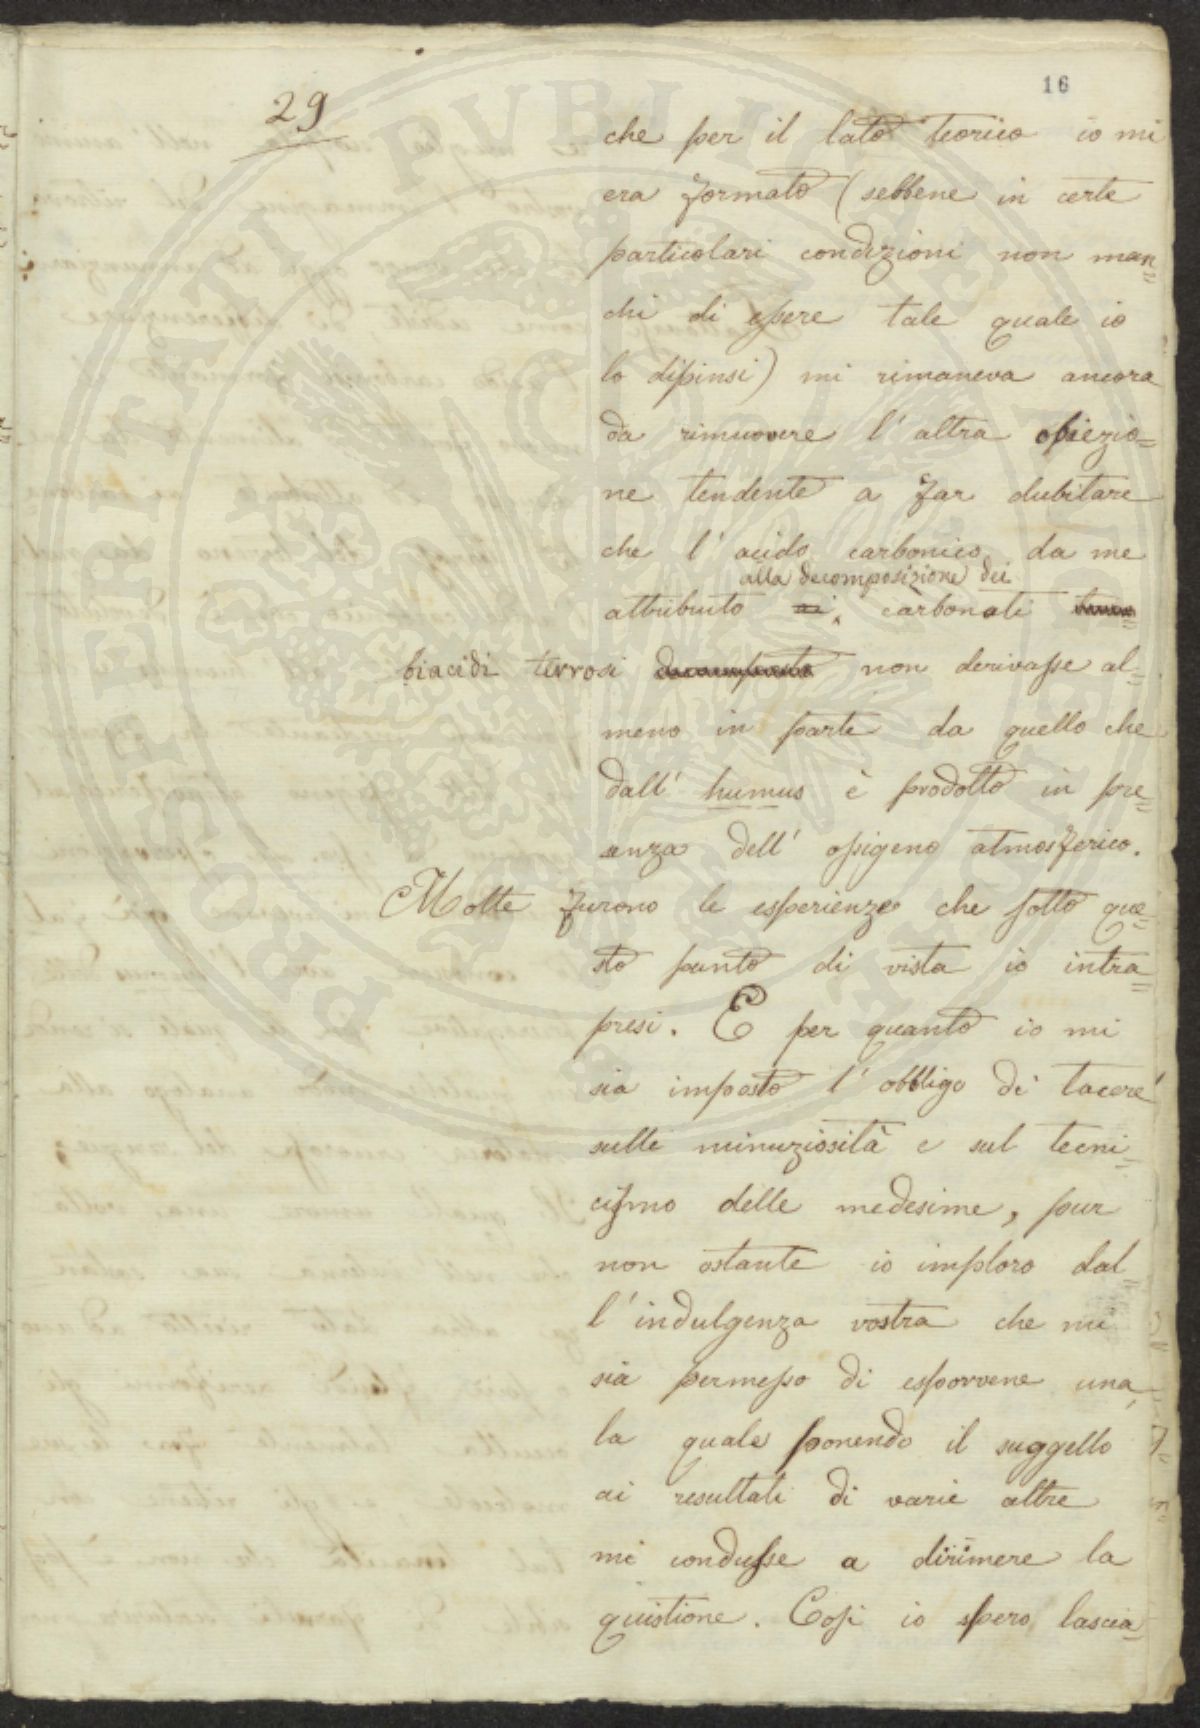 16
29
che per il lato teorico io mi
era formato (sebbene in certe
particolari condizioni non man=
chi di essere tale quale io
lo dipinsi) mi rimaneva ancora
da rimuovere l'altra obiezio=
ne tendente a far dubitare
che l'acido carbonico da me
alla decomposizione dei
attribuito ai carbonati
biacidi terrosi decomposti non derivasse al=
meno in parte da quello che
dall'humus è prodotto in pre=
senza dell'ossigeno atmosferico.
Molte furono le esperienze che sotto que=
sto punto di vista io intra=
presi. E per quanto io mi
sia imposto l'obbligo di tacere
sulle minuziosità e sul tecni=
cismo delle medesime, pur
non ostante io imploro dal=
l'indulgenza vostra che mi
sia permesso di esporvene una,
la quale ponendo il suggello
ai resultati di varie altre
mi condusse a dirimere la
quistione. Così io spero lascia=
PROSPERITATI PVBLICAE AVGENDAE